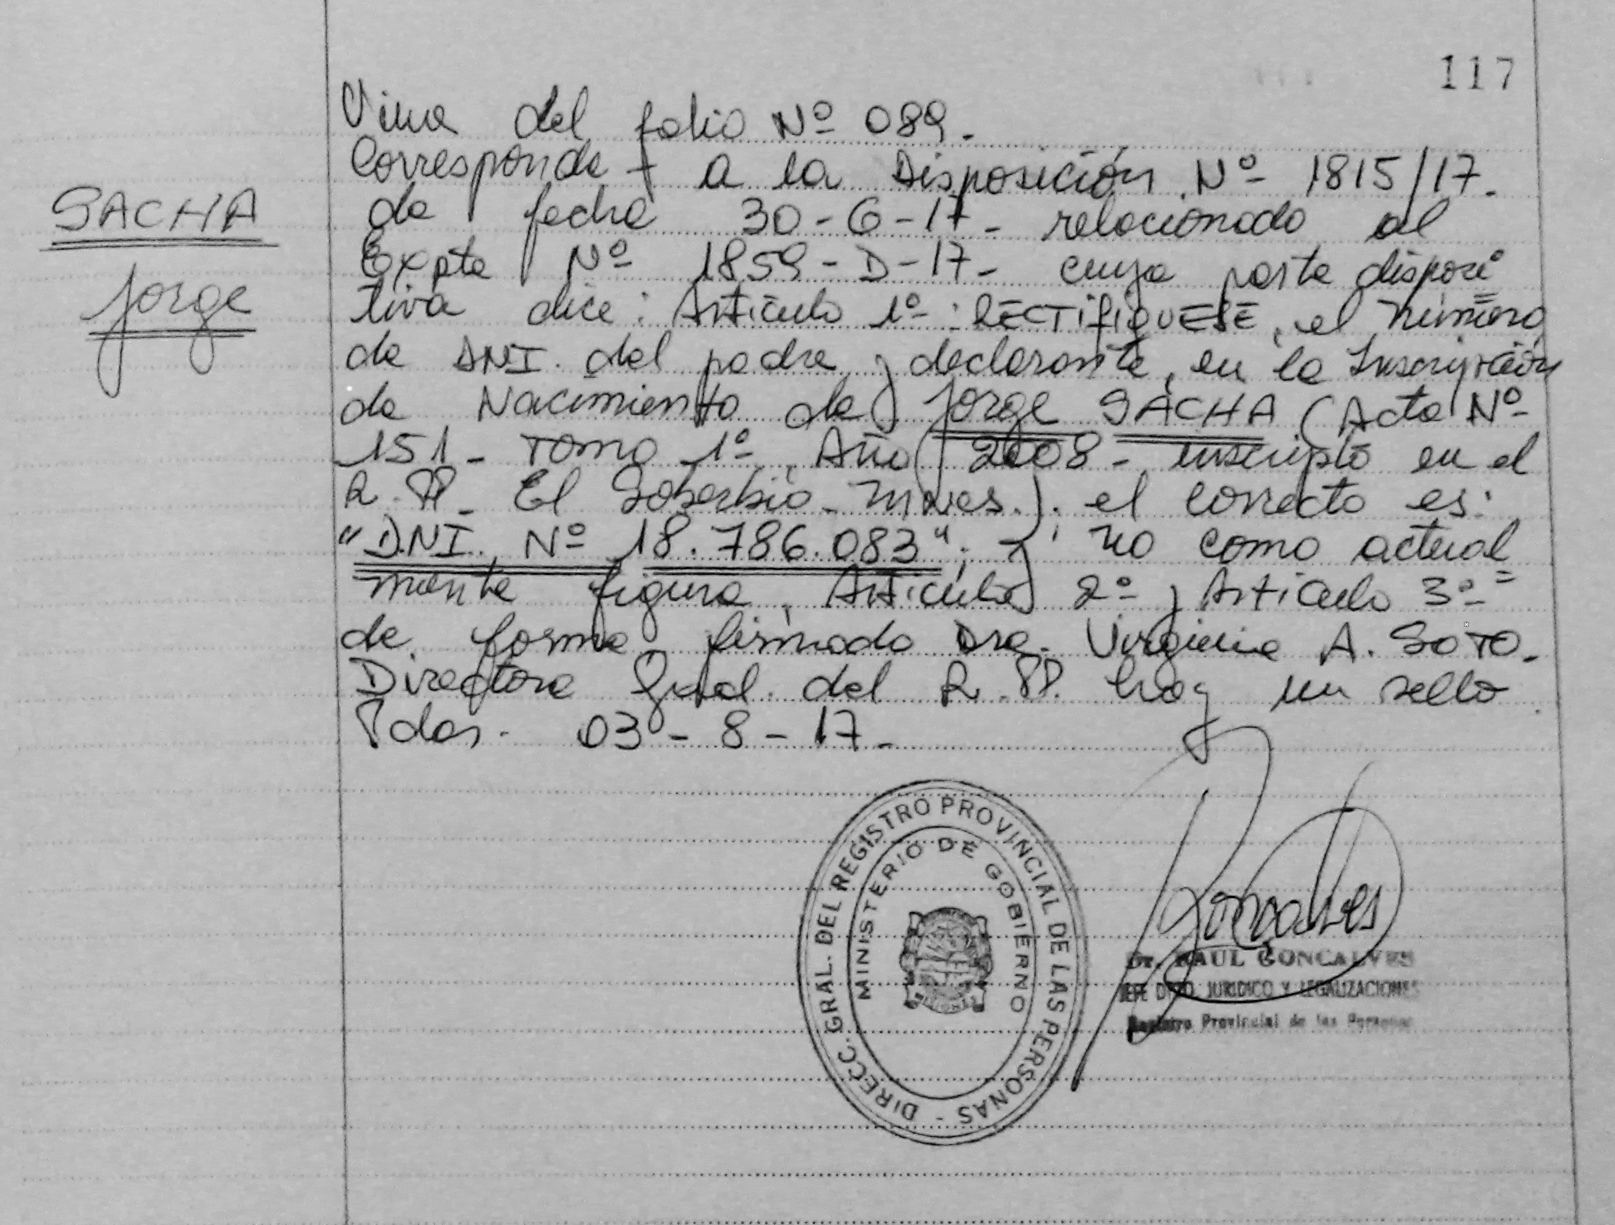 117
SACHA
Jorge
Viene del folio Nº 089.
Corresponde a la Disposición Nº 1815/17.
de fecha 30-6-17- relacionado al
Expte Nº 1859-D-17- cuya parte disposi
tiva dice: Artículo 1º: RECTIFIQUESE, el número
de DNI. del padre y declarante, en la Inscripción
de Nacimiento de Jorge SACHA (Acta Nº
151- Tomo 1º, Año 2008- inscripto en el
R.PP- El Soberbio- Mnes.). el correcto es:
"DNI. Nº 18.786.083"; y no como actual
mente figura, Artículo 2º y Artículo 3º=
de forma, firmado Dra. Virginia A. SOTO.
Directora Gral. del R.PP. hay un sello
Pdas. 03-8-17-
DIRECC. GRAL. DEL REGISTRO PROVINCIAL DE LAS PERSONAS -
MINISTERIO DE GOBIERNO
Goncalves
Dr. RAUL GONCALVES
JEFE DPTO. JURIDICO Y LEGALIZACIONES
Registro Provincial de las Personas